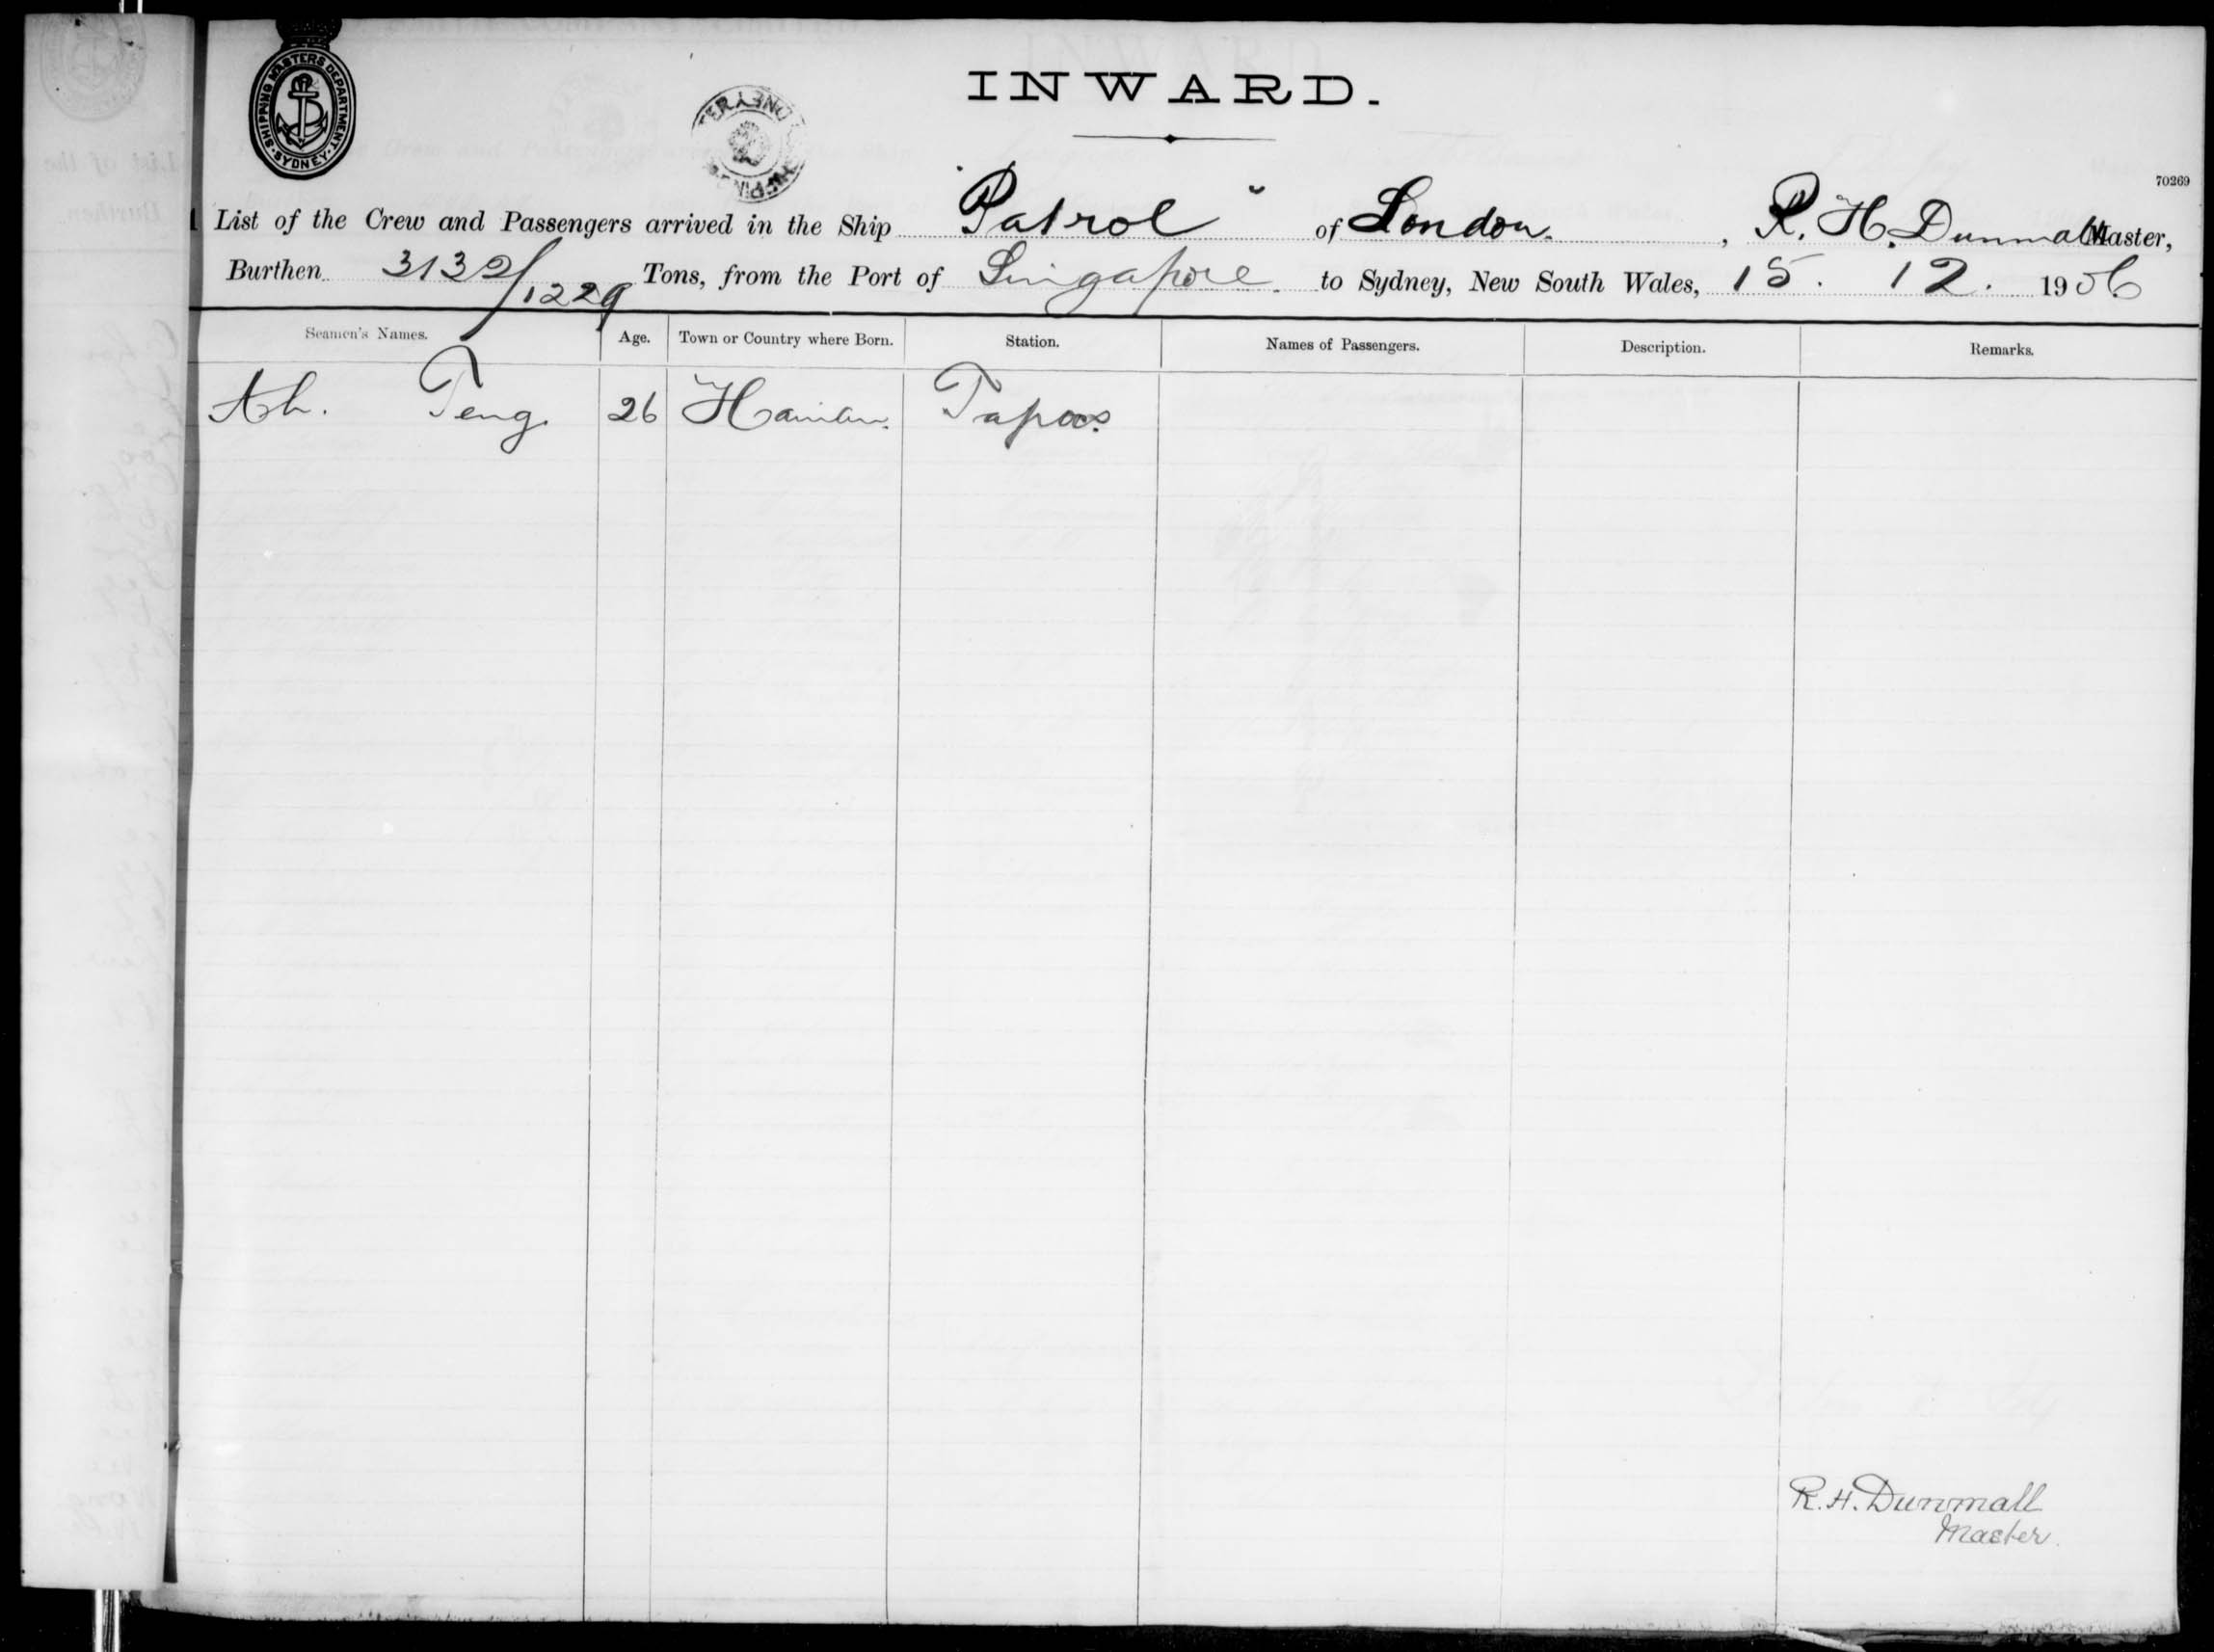 SHIPPING MASTERS DEPARTMENT. SYDNEY.
INWARD.
70269
List of the Crew and Passengers arrived in the Ship "Patrol" of London. , R. H. Dunmall Master,
Burthen 3130/1229 Tons, from the Port of Singapore. to Sydney, New South Wales, 15. 12. 1906
Seamen's Names. Age. Town or Country where Born. Station. Names of Passengers. Description. Remarks.
Ah. Teng. 26 Hainan.
R. H. Dunmall
Master.